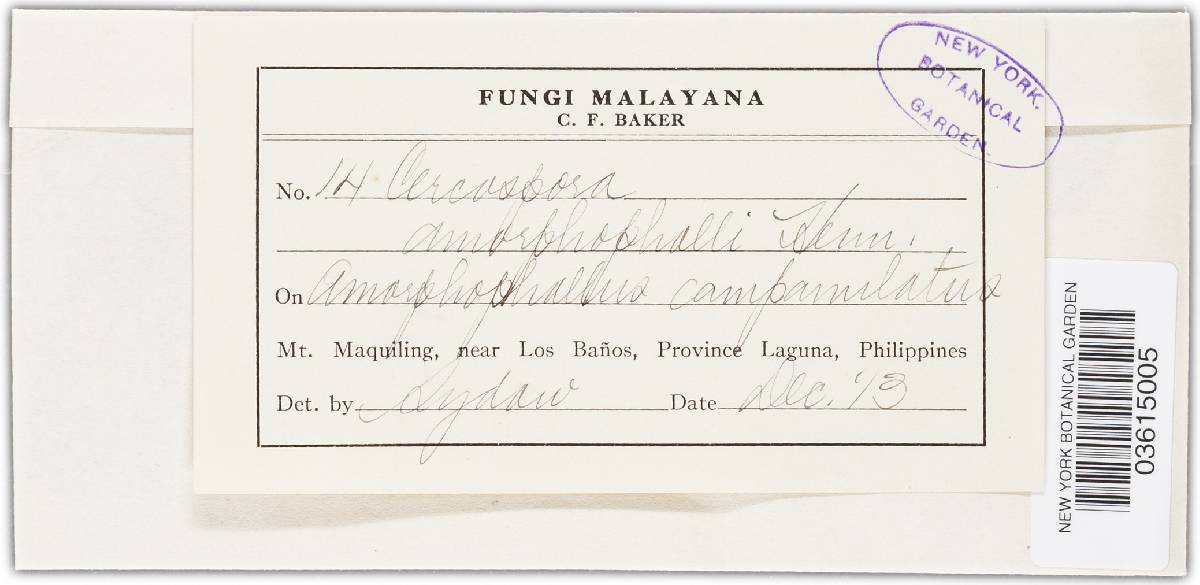 FUNGI MALAYANA
C. F. BAKER
NEW YORK.
BOTANICAL
GARDEN.
No. 14 Cercospora
amorphophalli Henn.
On Amorphophallus campanulatus
Mt. Maquiling, near Los Baños, Province Laguna, Philippines
Det. by Sydow Date Dec. '13
NEW YORK BOTANICAL GARDEN
03615005